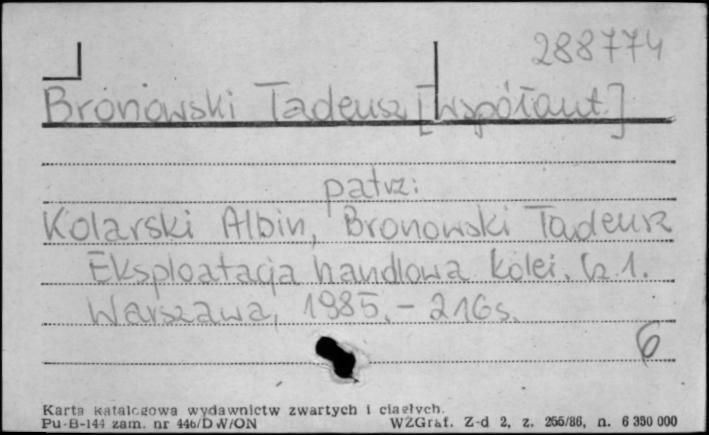 288774
Bronowski Tadeusz [współaut.]
patrz:
Kolarski Albin, Bronowski Tadeusz
Eksploatacja handlowa kolei. Cz 1.
Warszawa, 1985. – 216 s.
6
Karta katalogowa wydawnictw zwartych i ciągłych.
Pu-B-144 zam. nr 446/DW/ON WZGraf. Z-d 2, z. 255/86, n. 6 350 000